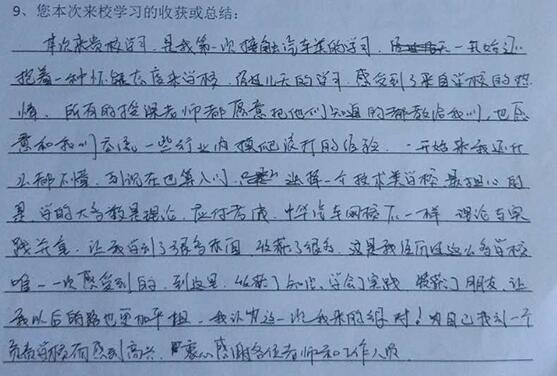 9、您本次来校学习的收获或总结：
本次来贵校学习，是我第一次接触汽车类的学习，一开始还
抱着一种怀疑态度来学校，经过几天的学习，感受到了来自学校的热
情，所有的授课老师都愿意把他们知道的都教给我们，也愿
意和我们交流一些行业内摸爬滚打的经验，一开始来我还什
么都不懂，到现在也算入门，选择一个技术类学校最担心的
是学的大多数是理论，应付考试，中华汽车网校不一样，理论与实
践并重，让我学到了很多东西，收获了很多，这是我经历过这么多学校
唯一一次感受到的，到这里，收获了知识，学会了实践，收获了朋友，让
我以后的路也更加平坦，我认为这一次我来的绝对！为自己找到一个
学校而感到高兴，衷心感谢各位老师和工作人员。